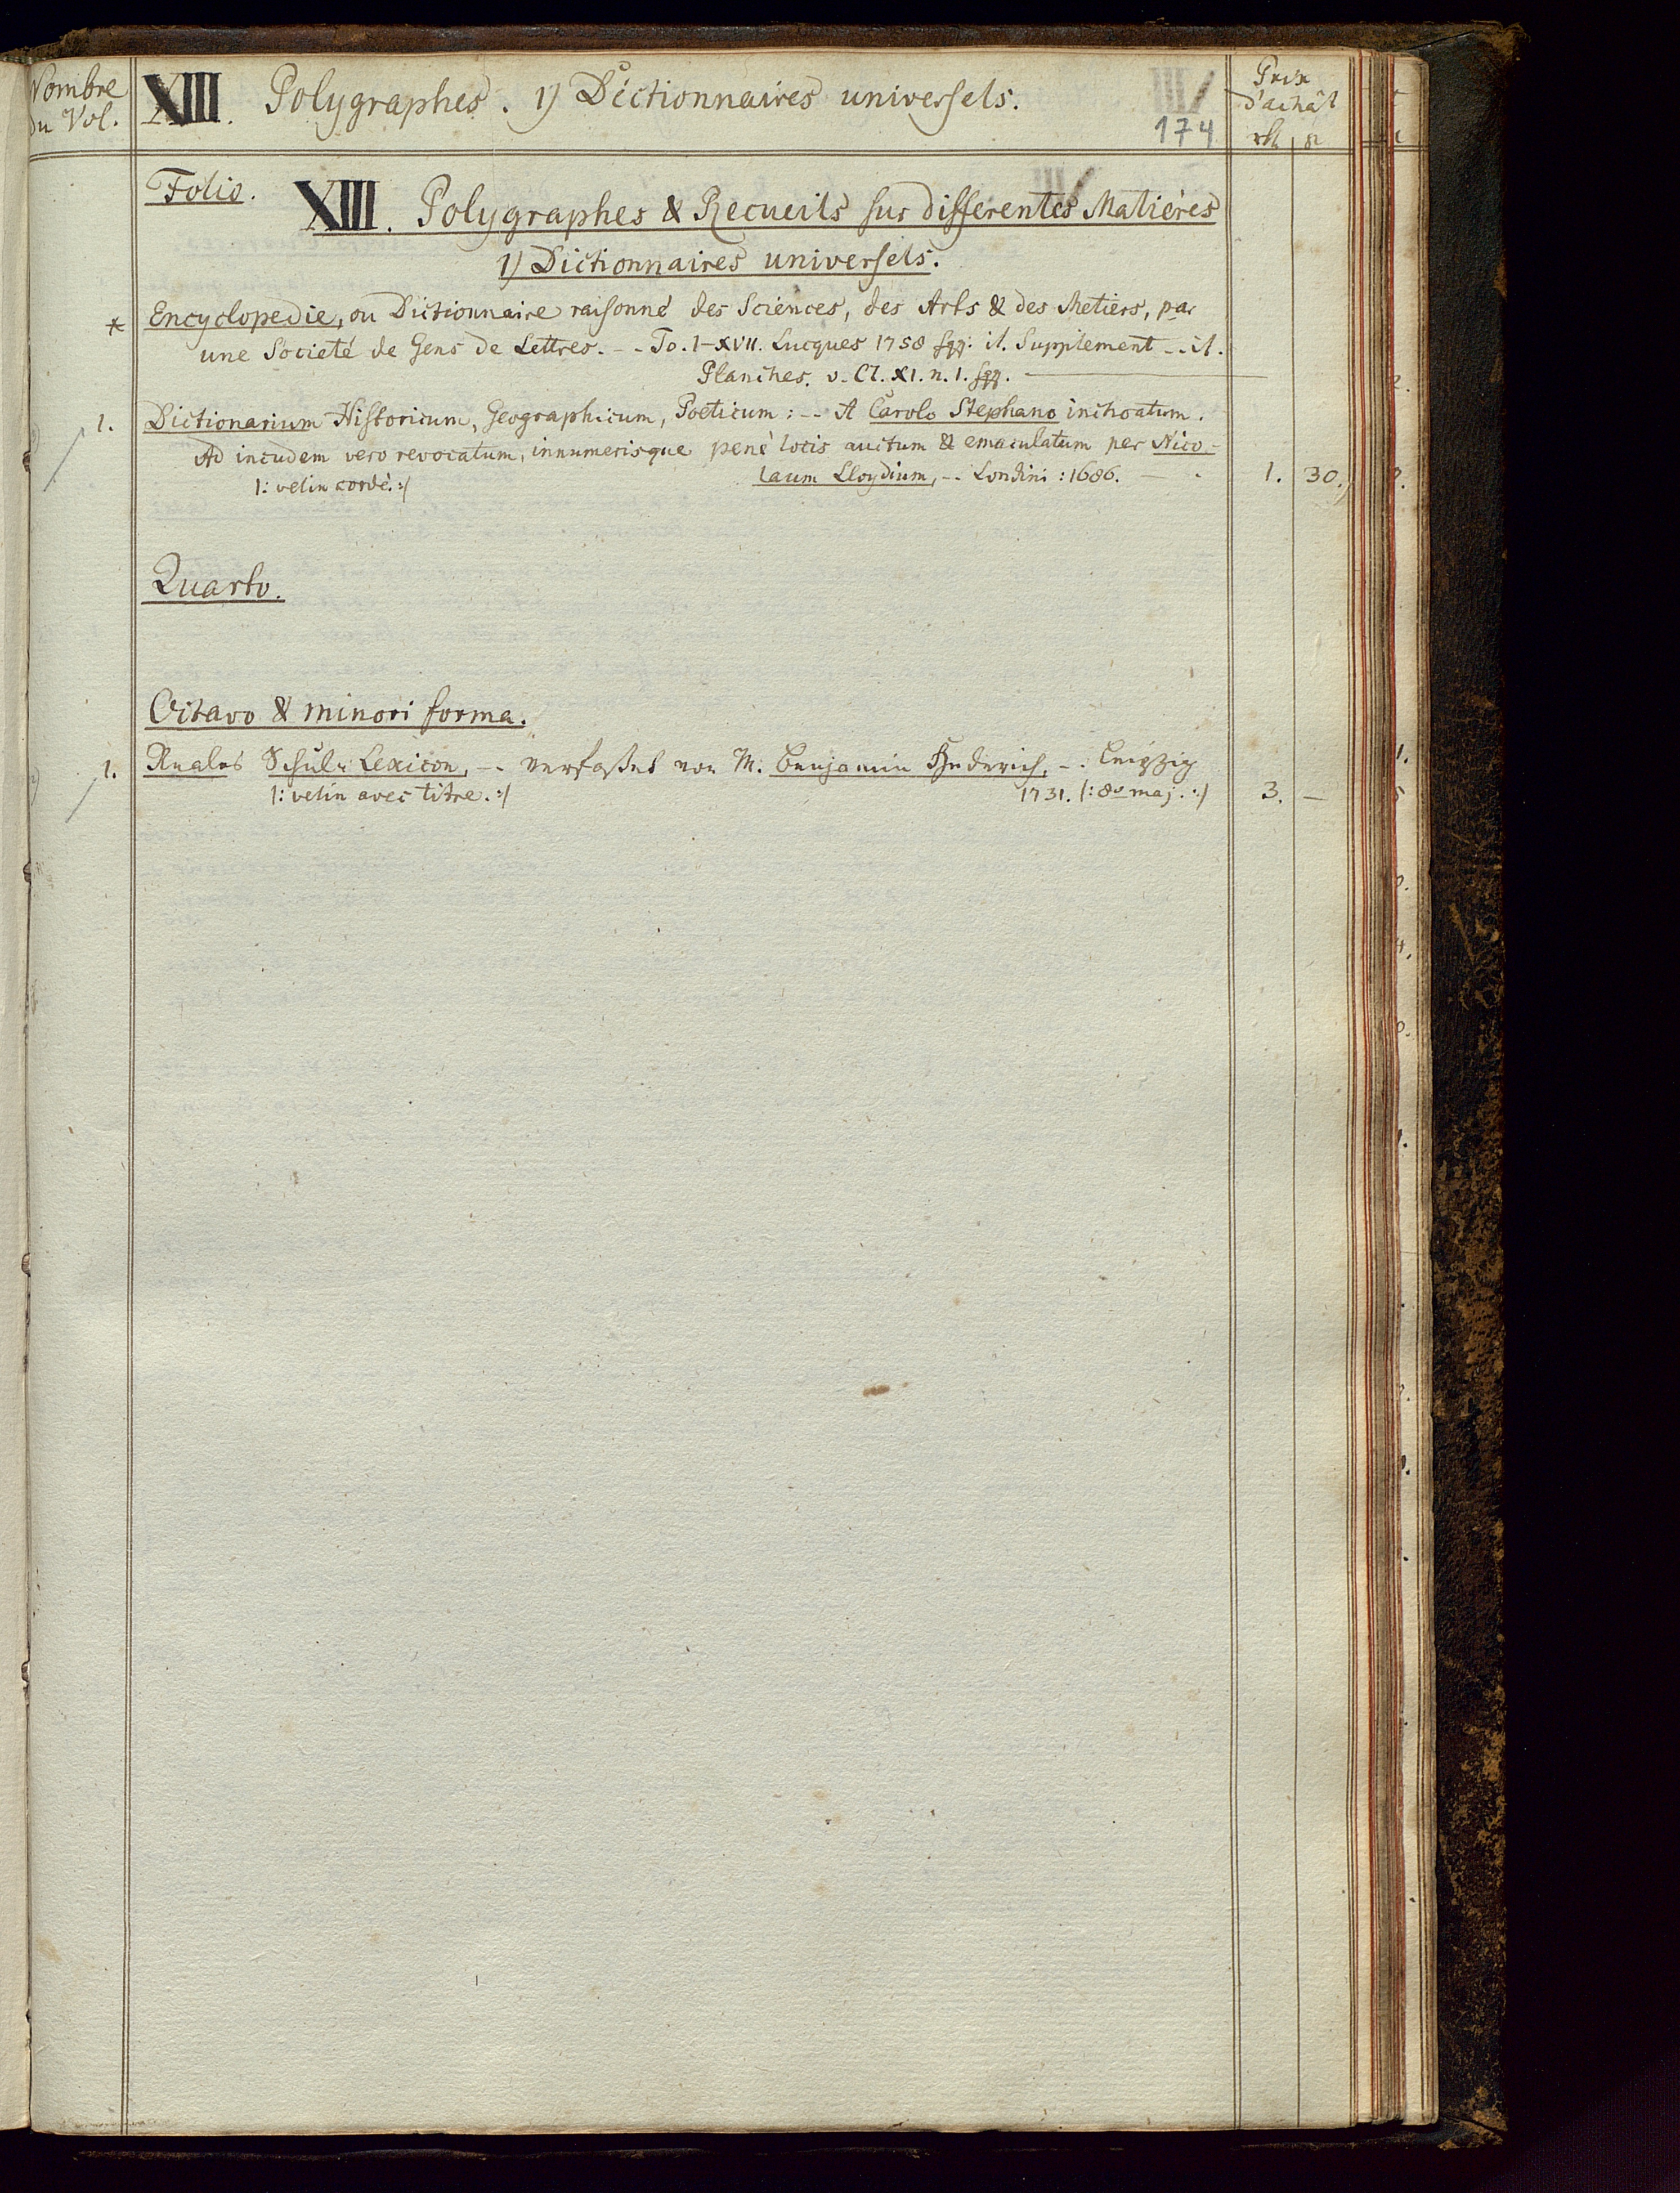 Nombre
du Vol.
XIII. Polygraphes. 1) Dictionnaires universels.
174
Prix
d'achât
Folio.
XIII. Polygraphes & Recueils sur differentes Matières
1) Dictionnaires universels.
* Encyclopedie, ou Dictionnaire raisonné des Sciences, des Arts & des Metiers, par
une Societé de Gens de Lettres. -- To. I-XVII. Lucques 1758 sqq. it. Supplement -- it.
Planches. v. Cl. XI. n. 1. sqq.
1. Dictionarium Historicum, Geographicum, Poëticum: -- A Carolo Stephano inchoatum.
Ad incudem vero revocatum, innumerisque penè locis auctum & emaculatum per Nico-
laum Lloydium, -- Londini: 1686. 1. 30.
/: velin cordé. :/
Quarto.
Octavo & minori forma.
1. Reales Schul-Lexicon, -- verfaßet von M. Benjamin Hederich, -- Leipzig
/: velin avec titre. :/ 1731. /: 8º maj. :/ 3. —